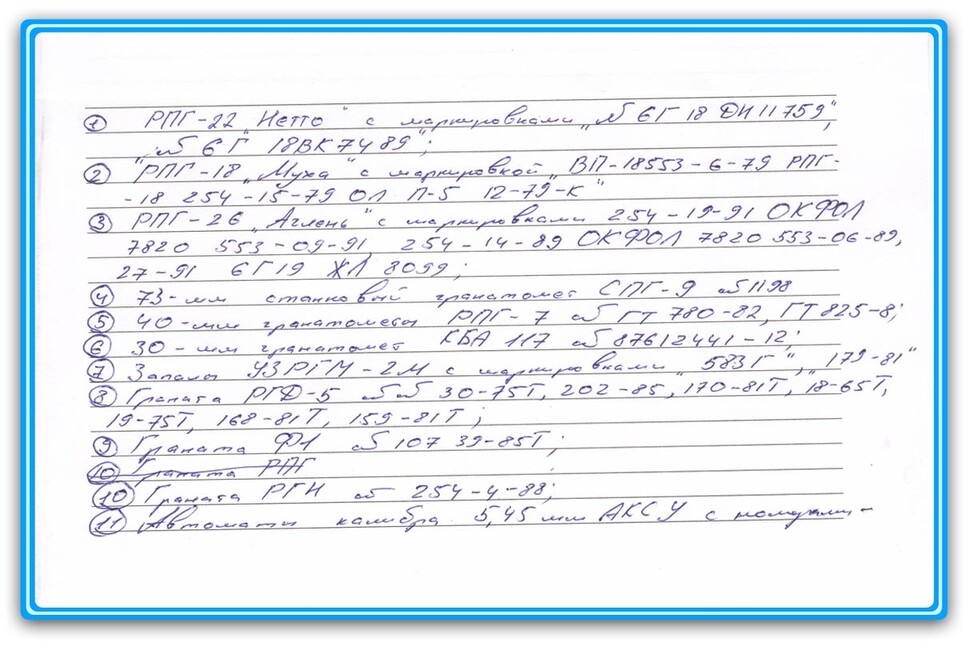 ① РПГ-22 „Нетто" с маркировками „№ 6Г 18 ДИ 11759",
„№ 6Г 18ВК7489";
② РПГ-18 „Муха" с маркировкой „ВП-18553-6-79 РПГ-
-18 254-15-79 ОЛ П-5 12-79-К"
③ РПГ-26 „Аглень" с маркировками 254-19-91 ОКФОЛ
7820 553-09-91, 254-14-89 ОКФОЛ 7820 553-06-89,
27-91 6Г19 ЖЛ 8099;
④ 73-мм станковый гранатомет СПГ-9 №1198
⑤ 40-мм гранатометы РПГ-7 № ГТ 780-82, ГТ 825-8;
⑥ 30-мм гранатомет КБА 117 № 87612441-12;
⑦ Запалы УЗРГМ-2М с маркировками „583Г", „179-81"
⑧ Граната РГД-5 №№ 30-75Т, 202-85, 170-81Т, 18-65Т,
19-75Т, 168-81Т, 159-81Т;
⑨ Граната Ф1 № 107 39-85Т;
⑩ Граната РАГ
⑩ Граната РГН № 254-4-88;
⑪ Автоматы калибра 5,45 мм АКСУ с номерами-